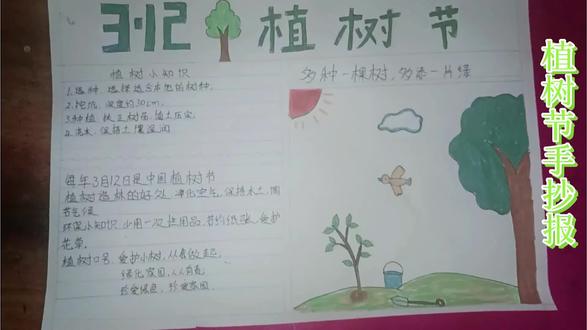 3·12 植树节
植树小知识
1.选种,选择适合本地的树种,
2.挖坑,深度约30cm,
3.种植 扶正树苗,填土压实,
4.浇水,保持土壤湿润
每年3月12日是中国植树节
植树造林的好处,净化空气,保持水土,调
节气候
环保小知识,少用一次性用品,节约纸张,爱护
花草。
植树口号,爱护小树,从我做起,
绿化家园,人人有责
珍爱绿色,珍爱家园
多种一棵树,多添一片绿
植树节手抄报